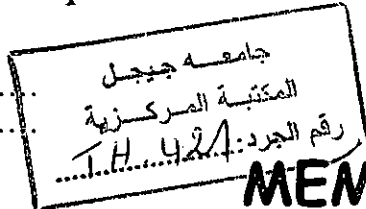 جامعه جيجل
المكتبة المركزية
رقم الجرد: TH. 421
MEM